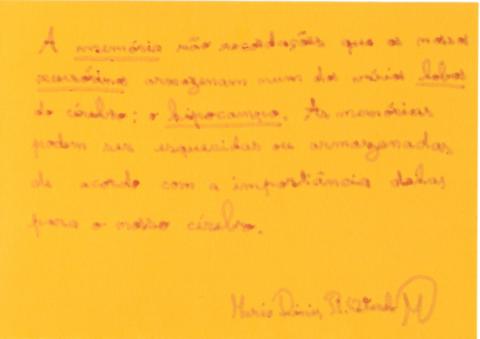 A memória são recordações que os nosso
armazenam num dos vários lobos
do cérebro: o hipocampo. As memórias
podem ser esquecidas ou armazenadas
de acordo com a importância delas
para o nosso cérebro.